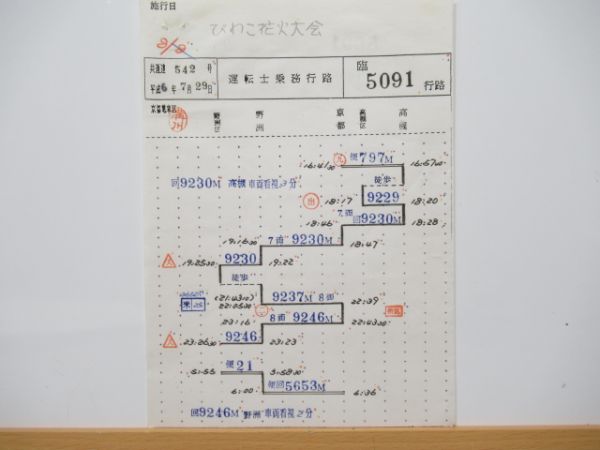 施行日
びわこ花火大会
共運達 542 号
平成6年7月29日
運転士乗務行路
臨 5091 行路
京都電車区
野洲区
野洲
京都
高槻区
高槻
16:41 便797M 16:57
徒歩
回9230M 高槻 車両看視3分
出 18:17 9229 18:20
18:46 7両 回9230M 18:28
19:16 7両 9230M 18:47
19:25 9230 19:22
徒歩
(21:43) 9237M 8両 22:39
22:25
23:16 8両 9246M 22:43
23:26 9246 23:23
5:55 便21 5:58
6:00 便回5653M 6:36
回9246M 野洲 車両看視2分